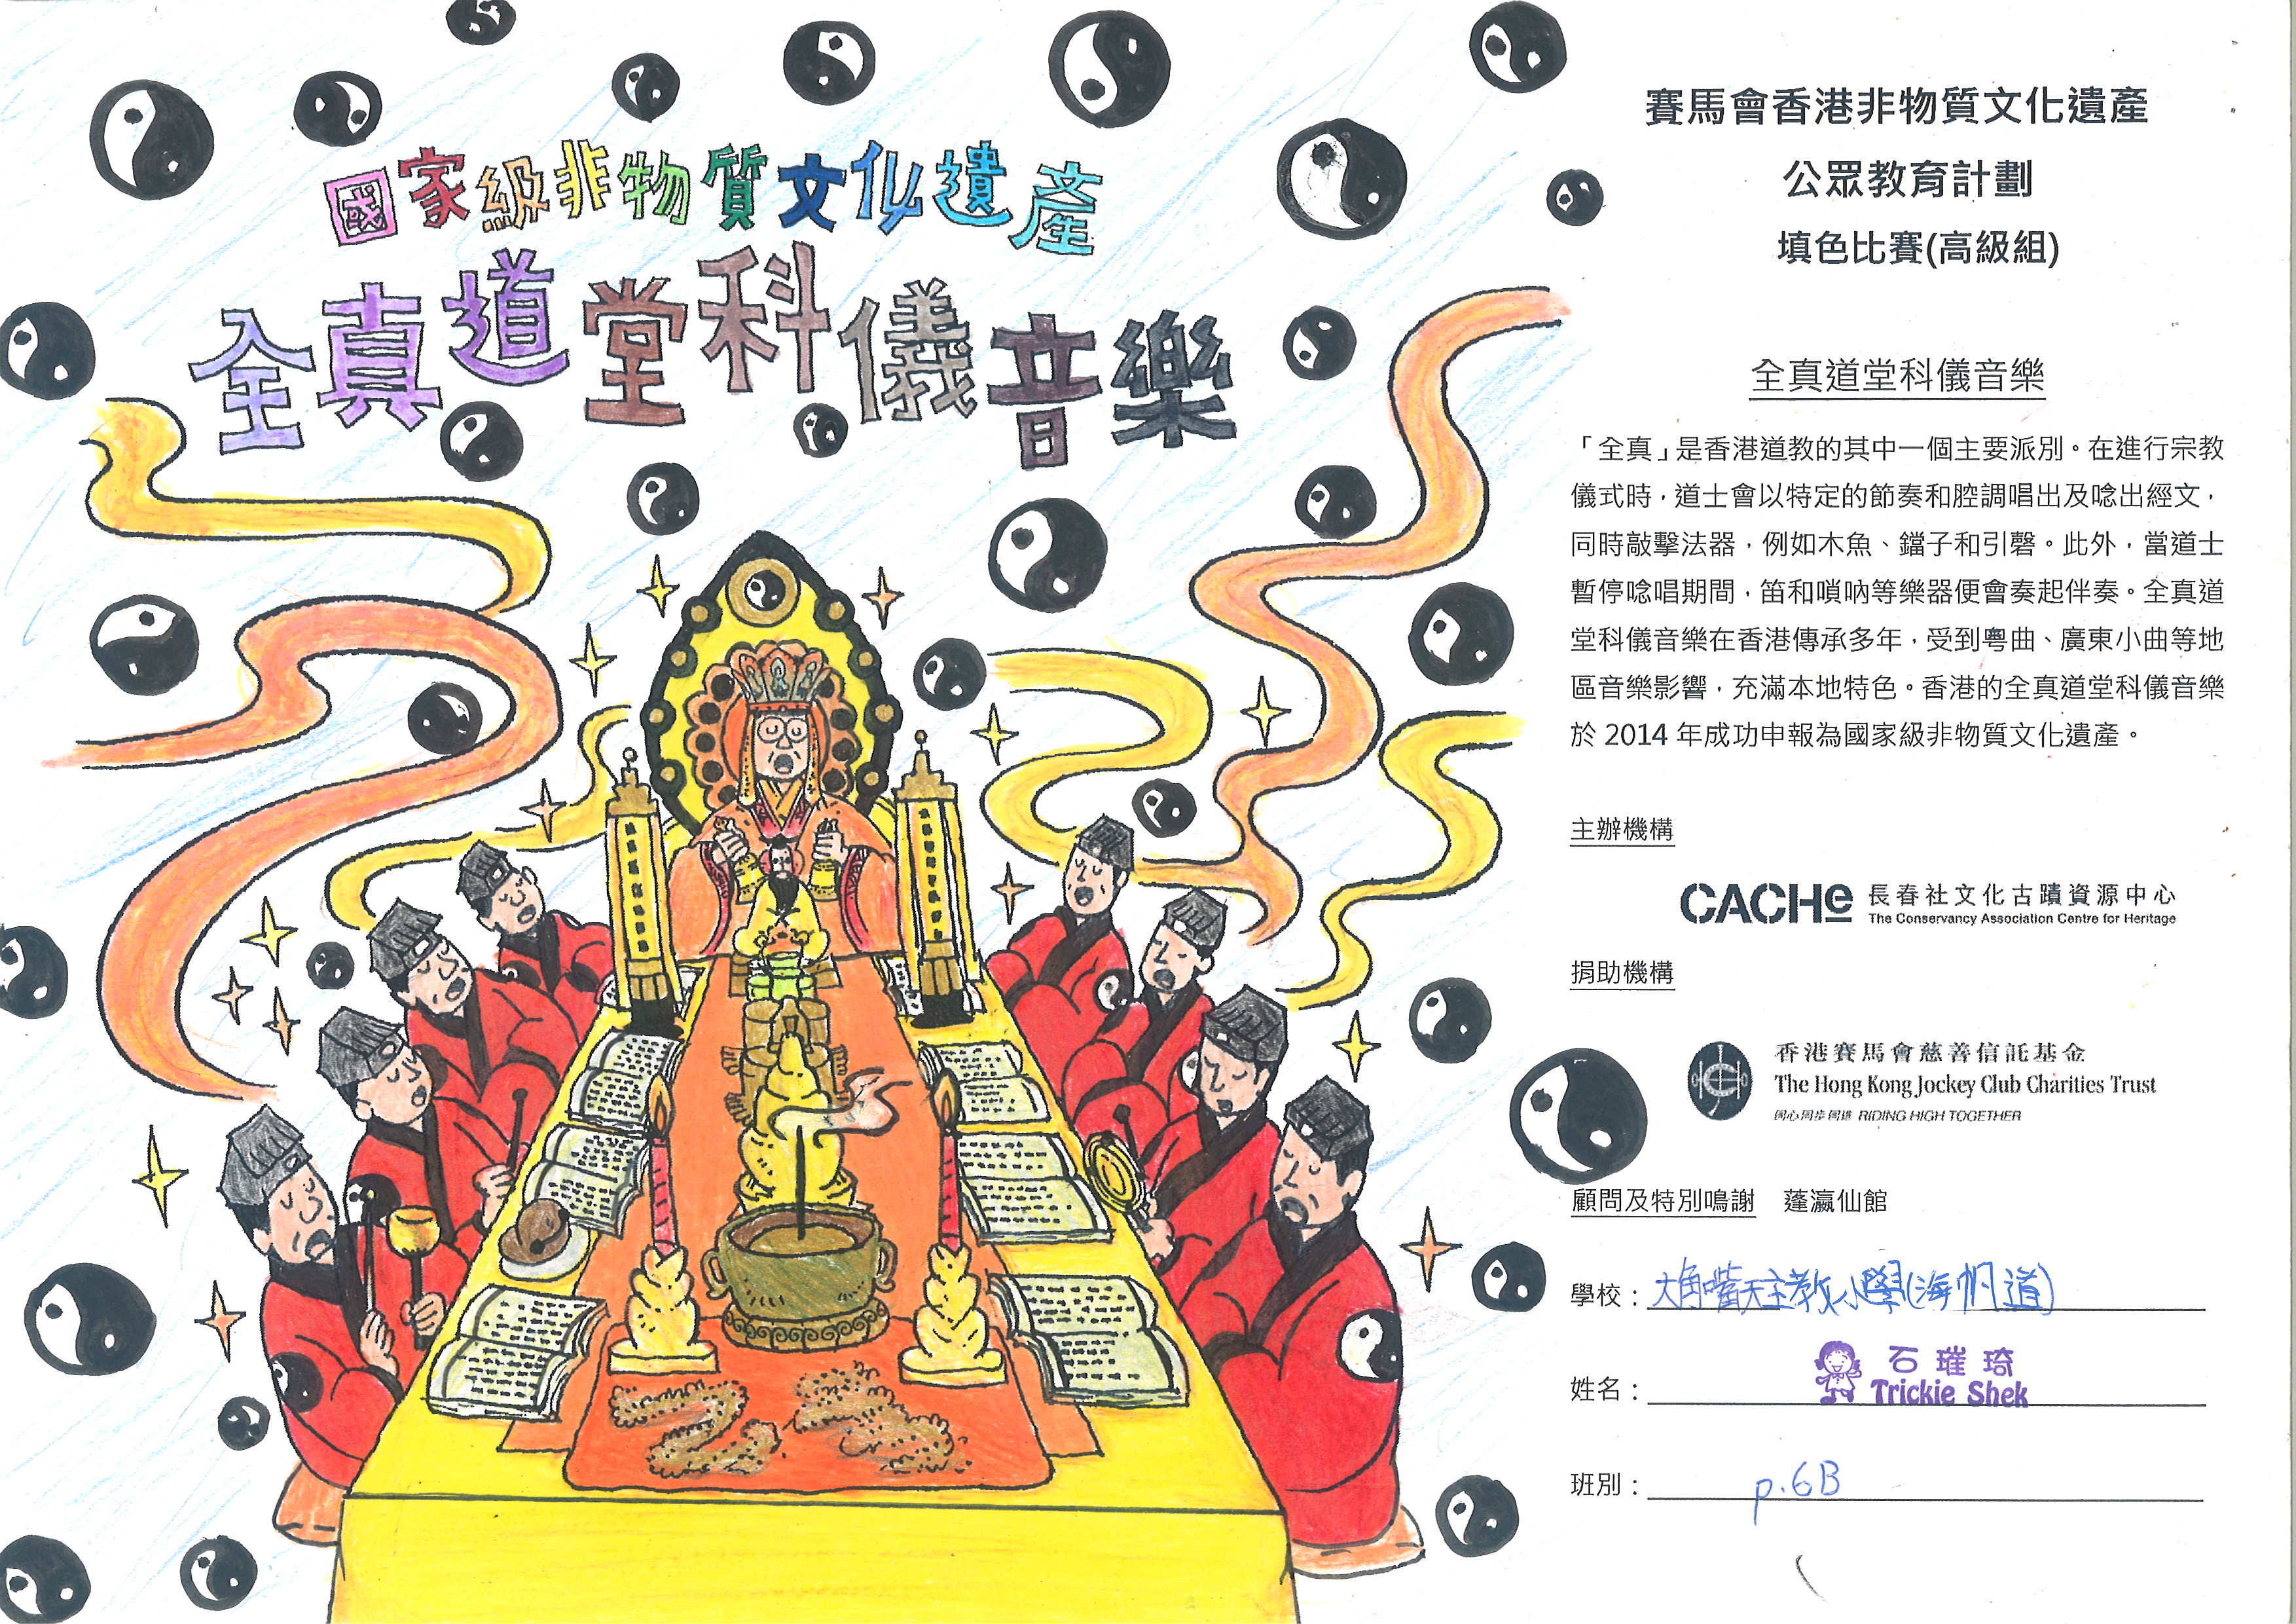 國家級非物質文化遺產
全真道堂科儀音樂
賽馬會香港非物質文化遺產
公眾教育計劃
填色比賽(高級組)
全真道堂科儀音樂
「全真」是香港道教的其中一個主要派別。在進行宗教
儀式時，道士會以特定的節奏和腔調唱出及唸出經文，
同時敲擊法器，例如木魚、鐺子和引磬。此外，當道士
暫停唸唱期間，笛和嗩吶等樂器便會奏起伴奏。全真道
堂科儀音樂在香港傳承多年，受到粵曲、廣東小曲等地
區音樂影響，充滿本地特色。香港的全真道堂科儀音樂
於 2014 年成功申報為國家級非物質文化遺產。
主辦機構
CACHe 長春社文化古蹟資源中心
The Conservancy Association Centre for Heritage
捐助機構
香港賽馬會慈善信託基金
The Hong Kong Jockey Club Charities Trust
同心同步同進 RIDING HIGH TOGETHER
顧問及特別鳴謝 蓬瀛仙館
學校：大角嘴天主教小學(海帆道)
姓名：石璀琦
Trickie Shek
班別：p.6B